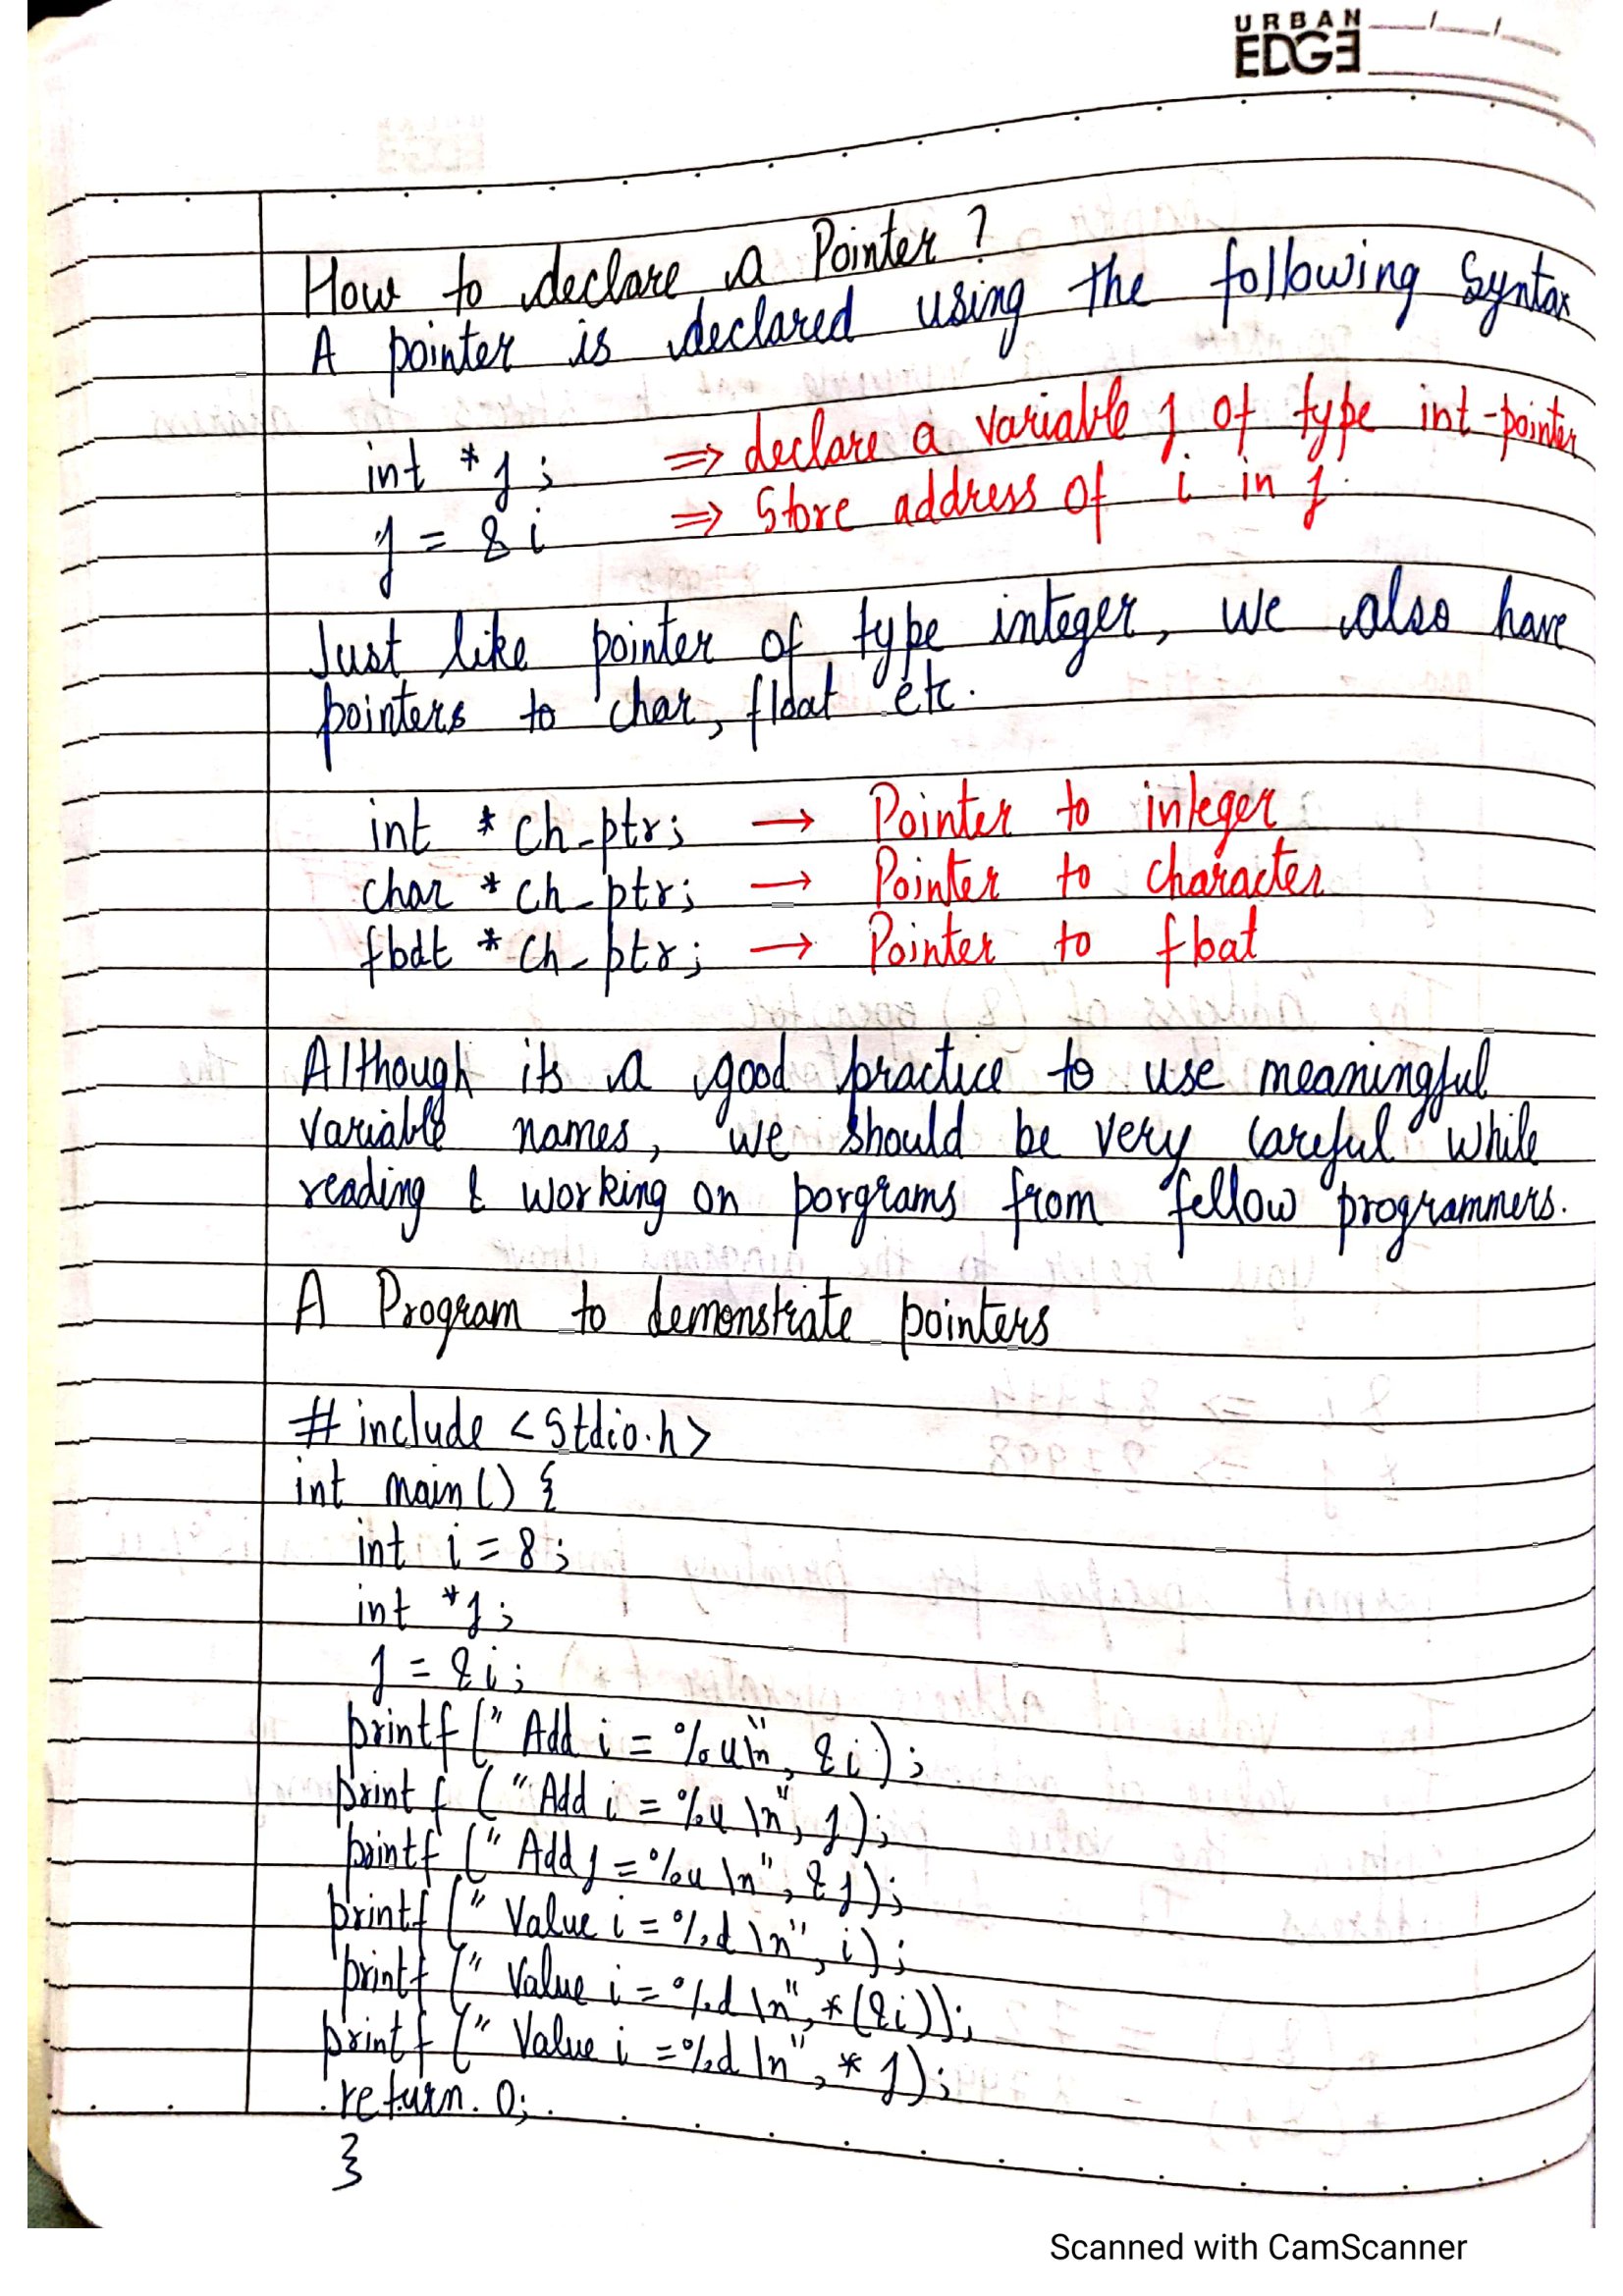 URBAN
EDGE __/__/__
How to declare a Pointer ?
A pointer is declared using the following Syntax
int *j ; ⇒ declare a variable j of type int-pointer
j = &i ⇒ Store address of i in j.
Just like pointer of type integer, we also have
pointers to char, float etc.
int * ch_ptr; → Pointer to integer
char * ch_ptr; → Pointer to character
float * ch_ptr; → Pointer to float
Although its a good practice to use meaningful
variable names, we should be very careful while
reading & working on porgrams from fellow programmers.
A Program to demonstrate pointers
# include <Stdio.h>
int main() {
int i = 8;
int *j;
j = &i;
printf (" Add i = %u\n", &i);
printf ("Add i = %u \n", j);
printf (" Add j = %u \n", &j);
printf (" Value i = %d \n", i);
printf (" Value i = %d \n", *(&i));
printf (" Value i = %d \n", * j);
return 0;
}
Scanned with CamScanner